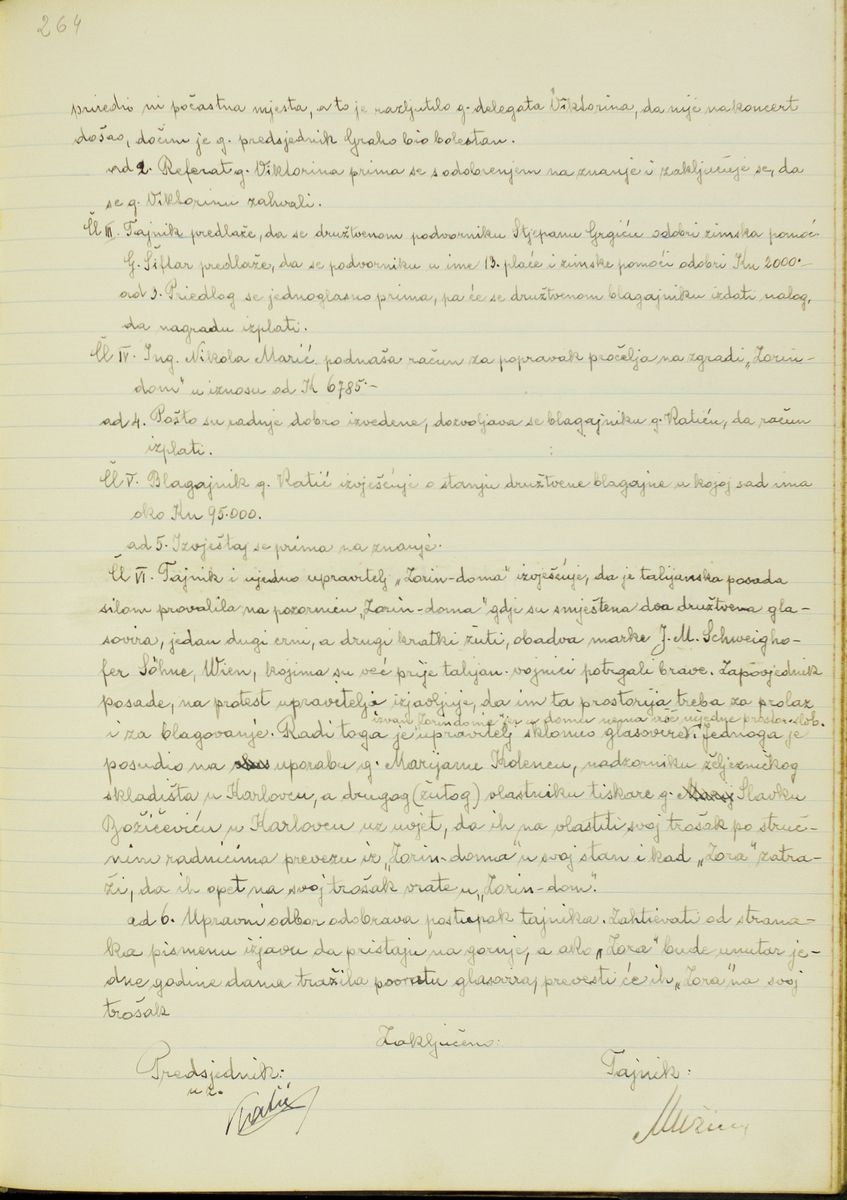 264
priredio ni počastna mjesta, a to je razljutilo g. delegata Viktorina, da nije na koncert
došao, dočim je g. predsjednik Graho bio bolestan.
ad 2. Referat g. Viktorina prima se s odobrenjem na znanje i zaključuje se, da
se g. Viktorinu zahvali.
Čl III. Tajnik predlaže, da se družtvenom podvorniku Stjepanu Grgiću odobri zimska pomoć.
G. Šiftar predlaže, da se podvorniku u ime 13. plaće i zimske pomoći odobri Kn 2000.-
ad 3. Priedlog se jednoglasno prima, pa će se družtvenom blagajniku izdati nalog,
da nagradu izplati.
Čl IV. Ing. Nikola Marić podnaša račun za popravak pročelja na zgradi „Zorin-
dom" u iznosu od K 6785.-
ad 4. Pošto su radnje dobro izvedene, dozvoljava se blagajniku g. Katiću, da račun
izplati.
Čl V. Blagajnik g. Katić izvješćuje o stanju družtvene blagajne u kojoj sad ima
oko Kn 95.000.
ad 5. Izvještaj se prima na znanje.
Čl VI. Tajnik i ujedno upravitelj „Zorin-doma" izvješćuje, da je talijanska posada
silom provalila na pozornicu „Zorin-doma" gdje su smještena dva družtvena gla-
sovira, jedan dugi crni, a drugi kratki žuti, obadva marke J. M. Schweigho-
fer Söhne, Wien, kojima su već prije talijan. vojnici potrgali brave. Zapovjednik
posade, na protest upravitelja izjavljuje, da im ta prostorija treba za prolaz
i za blagovanje. Radi toga je upravitelj sklonuo glasovire i jednoga je
posudio na uporabu g. Marijanu Kolencu, nadzorniku željezničkog
skladišta u Karlovcu, a drugog (žutog) vlastniku tiskare g. Slavku
Božičeviću u Karlovcu uz uvjet, da ih na vlastiti svoj trošak po struč-
nim radnicima prevezu iz „Zorin-doma" u svoj stan i kad „Zora" zatra-
ži, da ih opet na svoj trošak vrate u „Zorin-dom".
ad 6. Upravni odbor odobrava postupak tajnika. Zahtievati od strana-
ka pismenu izjavu da pristaju na gornje, a ako „Zora" bude unutar je-
dne godine dana tražila povratu glasovira, prevesti će ih „Zora" na svoj
trošak
Zaključeno:
Predsjednik: Tajnik:
u z.
Katić